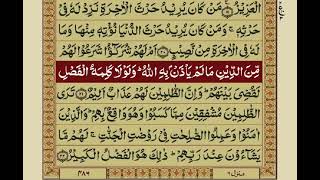 الْعَزِيْزُ ﴿۱۹﴾ مَنْ كَانَ يُرِيْدُ حَرْثَ الْاٰخِرَةِ نَزِدْ لَهٗ فِيْ
حَرْثِهٖ ۚ وَمَنْ كَانَ يُرِيْدُ حَرْثَ الدُّنْيَا نُؤْتِهٖ مِنْهَا وَمَا
لَهٗ فِي الْاٰخِرَةِ مِنْ نَّصِيْبٍ ﴿۲۰﴾ اَمْ لَهُمْ شُرَكٰٓؤُا شَرَعُوْا لَهُمْ
مِّنَ الدِّيْنِ مَا لَمْ يَاْذَنْۢ بِهِ اللّٰهُ ؕ وَلَوْلَا كَلِمَةُ الْفَصْلِ
لَقُضِيَ بَيْنَهُمْ ؕ وَاِنَّ الظّٰلِمِيْنَ لَهُمْ عَذَابٌ اَلِيْمٌ ﴿۲۱﴾ تَرَى
الظّٰلِمِيْنَ مُشْفِقِيْنَ مِمَّا كَسَبُوْا وَهُوَ وَاقِعٌۢ بِهِمْ ؕ وَالَّذِيْنَ
اٰمَنُوْا وَعَمِلُوا الصّٰلِحٰتِ فِيْ رَوْضٰتِ الْجَنّٰتِ ۚ لَهُمْ مَّا
يَشَآءُوْنَ عِنْدَ رَبِّهِمْ ؕ ذٰلِكَ هُوَ الْفَضْلُ الْكَبِيْرُ ﴿۲۲﴾
منزل ۶ ۴۸۶